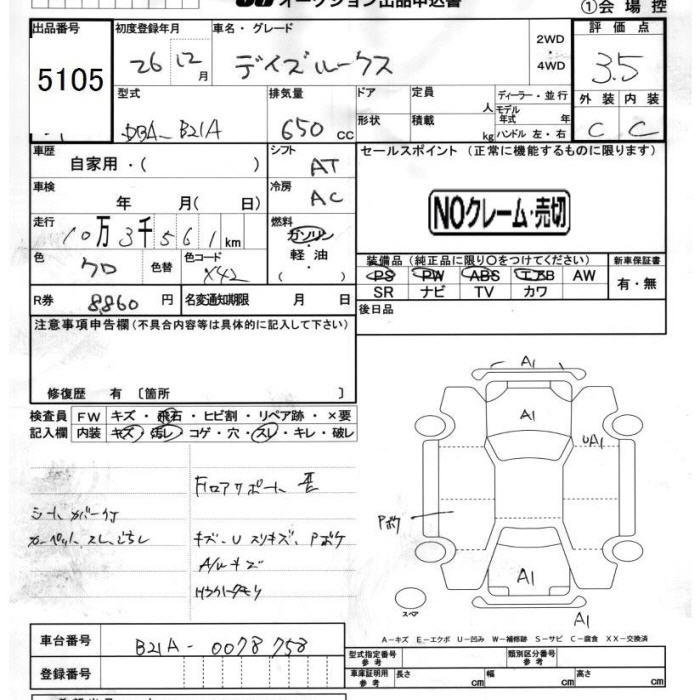 オークション出品申込書
①会場控
出品番号 初度登録年月 車名・グレード 2WD・4WD 評価点
5105 26 12月 デイズルークス 3.5
型式 排気量 ドア 定員 人 ディーラー・並行 外装 内装
DBA-B21A 650cc 形状 積載 kg モデル年式 年 ハンドル 左・右 C C
車歴 自家用・( ) シフト AT セールスポイント (正常に機能するものに限ります)
車検 年 月( 日) 冷房 AC
NOクレーム・売切
走行 10万3千561km 燃料 ガソリン・軽油・( )
色 クロ 色替 色コード X42
装備品(純正品に限り〇をつけてください) 新車保証書
PS PW ABS エアB AW 有・無
SR ナビ TV カワ
R券 8,860円 名変通知期限 月 日 後日品
注意事項申告欄(不具合内容等は具体的に記入して下さい)
修復歴 有〔箇所 〕
検査員 FW キズ・飛石・ヒビ割・リペア跡・×要
記入欄 内装 キズ・汚レ・コゲ・穴・スレ・キレ・破レ
フロアサポート 歪
シートカバー付
カーペット スレ、ごちし
キズ、U スリキズ、Pボケ
A/Wキズ
A1
A1
UA1
Pボケ
A1
A1
スペア
A-キズ E-エクボ U-凹み W-補修跡 S-サビ C-腐食 XX-交換済
車台番号 B21A-0078758
登録番号
型式指定番号 参考 類別区分番号 参考
車庫証明用 参考 長さ cm 幅 cm 高さ cm